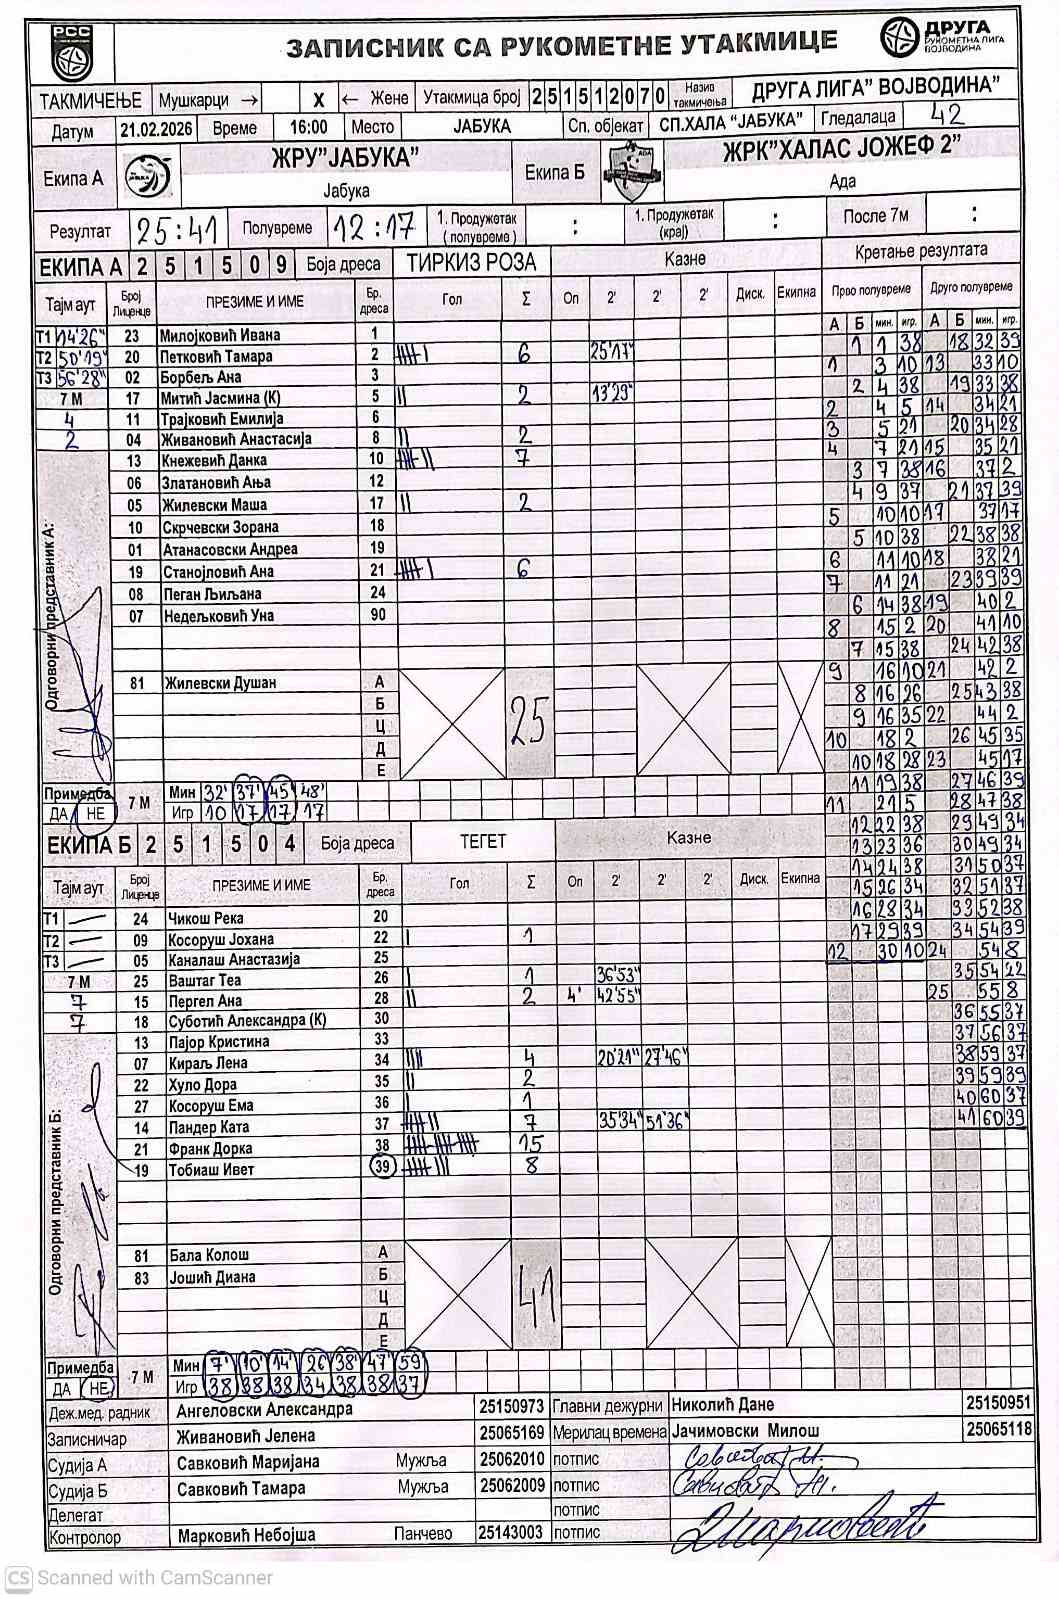 РСС
ЗАПИСНИК СА РУКОМЕТНЕ УТАКМИЦЕ
ДРУГА РУКОМЕТНА ЛИГА ВОЈВОДИНА
ТАКМИЧЕЊЕ Мушкарци → X ← Жене Утакмица број 2 5 1 5 1 2 0 7 0 Назив такмичења ДРУГА ЛИГА" ВОЈВОДИНА"
Датум 21.02.2026 Време 16:00 Место ЈАБУКА Сп. објекат СП.ХАЛА "ЈАБУКА" Гледалаца 42
Екипа А ЖРУ"ЈАБУКА" Јабука Екипа Б ЖРК"ХАЛАС ЈОЖЕФ 2" Ада
Резултат 25:41 Полувреме 12:17 1. Продужетак (полувреме) : 1. Продужетак (крај) : После 7м :
ЕКИПА А 2 5 1 5 0 9 Боја дреса ТИРКИЗ РОЗА Казне Кретање резултата
Тајм аут Број Лиценце ПРЕЗИМЕ И ИМЕ Бр. дреса Гол Σ Оп 2' 2' 2' Диск. Екипна Прво полувреме Друго полувреме
А Б мин. игр. А Б мин. игр.
Т1 14'26" 23 Милојковић Ивана 1
Т2 50'19" 20 Петковић Тамара 2 6 25'17"
Т3 56'28" 02 Борбељ Ана 3
7 М 17 Митић Јасмина (К) 5 2 13'29"
4 11 Трајковић Емилија 6
2 04 Живановић Анастасија 8 2
13 Кнежевић Данка 10 7
06 Златановић Ања 12
05 Жилевски Маша 17 2
10 Скрчевски Зорана 18
01 Атанасовски Андреа 19
19 Станојловић Ана 21 6
08 Пеган Љиљана 24
07 Недељковић Уна 90
Одговорни представник А:
81 Жилевски Душан А
Б
Ц
Д
Е
25
Примедба ДА НЕ 7 М
Мин 32' 37' 45' 48'
Игр 10 17 17 17
ЕКИПА Б 2 5 1 5 0 4 Боја дреса ТЕГЕТ Казне
Тајм аут Број Лиценце ПРЕЗИМЕ И ИМЕ Бр. дреса Гол Σ Оп 2' 2' 2' Диск. Екипна
Т1 24 Чикош Река 20
Т2 09 Косоруш Јохана 22 1
Т3 05 Каналаш Анастазија 25
7 М 25 Ваштаг Теа 26 1 36'53"
7 15 Пергел Ана 28 2 4' 42'55"
7 18 Суботић Александра (К) 30
13 Пајор Кристина 33
07 Кираљ Лена 34 4 20'21" 27'46"
22 Хуло Дора 35 2
27 Косоруш Ема 36 1
14 Пандер Ката 37 7 35'34" 51'36"
21 Франк Дорка 38 15
19 Тобиаш Ивет 39 8
Одговорни представник Б:
81 Бала Колош А
83 Јошић Диана Б
Ц
Д
Е
41
Примедба ДА НЕ 7 М
Мин 7' 10' 14' 26 38' 47' 59
Игр 38 38 38 34 38 38 37
1 1 38 18 32 39
1 3 10 13 33 10
2 4 38 19 33 38
2 4 5 14 34 21
3 5 21 20 34 28
4 7 21 15 35 21
3 7 38 16 37 2
4 9 37 21 37 39
5 10 10 17 37 17
5 10 38 22 38 38
6 11 10 18 38 21
7 11 21 23 39 39
6 14 38 19 40 2
8 15 2 20 41 10
7 15 38 24 42 38
9 16 10 21 42 2
8 16 26 25 43 38
9 16 35 22 44 2
10 18 2 26 45 35
10 18 28 23 45 17
11 19 38 27 46 39
11 21 5 28 47 38
12 22 38 29 49 34
13 23 36 30 49 34
14 24 38 31 50 37
15 26 34 32 51 37
16 28 34 33 52 38
17 29 39 34 54 39
12 30 10 24 54 8
35 54 22
25 55 8
36 55 37
37 56 37
38 59 37
39 59 39
40 60 37
41 60 39
Деж.мед. радник Ангеловски Александра 25150973 Главни дежурни Николић Дане 25150951
Записничар Живановић Јелена 25065169 Мерилац времена Јачимовски Милош 25065118
Судија А Савковић Маријана Мужља 25062010 потпис
Судија Б Савковић Тамара Мужља 25062009 потпис
Делегат потпис
Контролор Марковић Небојша Панчево 25143003 потпис
CS Scanned with CamScanner